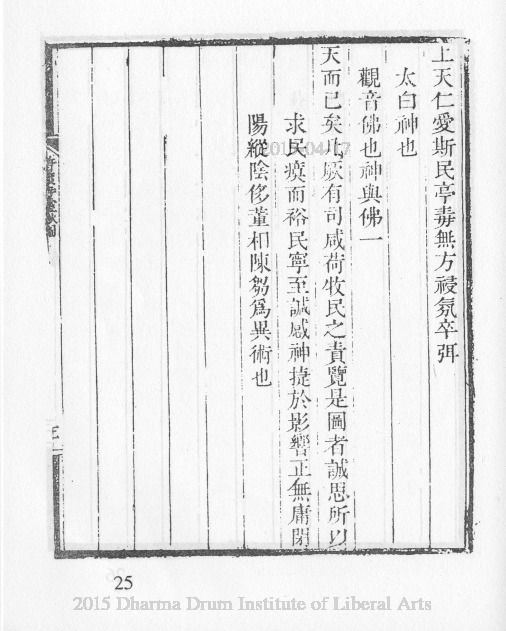 上天仁愛斯民亭毒無方祲氛卒弭
太白神也
觀音佛也神與佛一
天而已矣凡厥有司咸荷牧民之責覽是圖者誠思所以
求民瘼而裕民寧至誠感神捷於影響正無庸閉
陽縱陰侈董相陳芻爲異術也
25
2015 Dharma Drum Institute of Liberal Arts